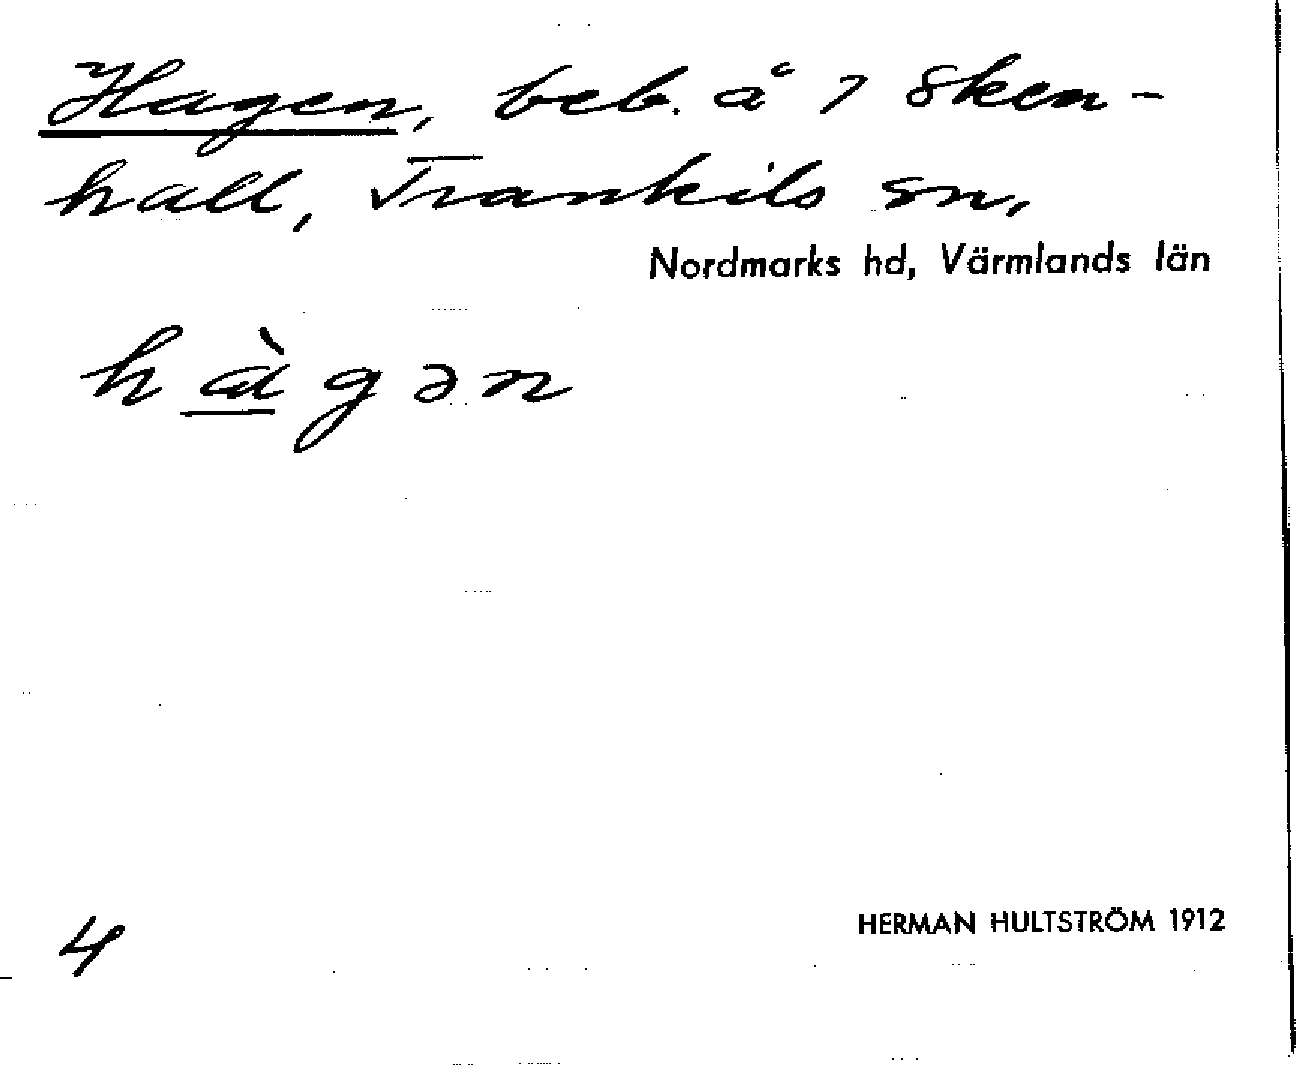 Hagen, beb. å 7 Sken-
hall, Trankils sn,
Nordmarks hd, Värmlands län
hàgən
4
HERMAN HULTSTRÖM 1912